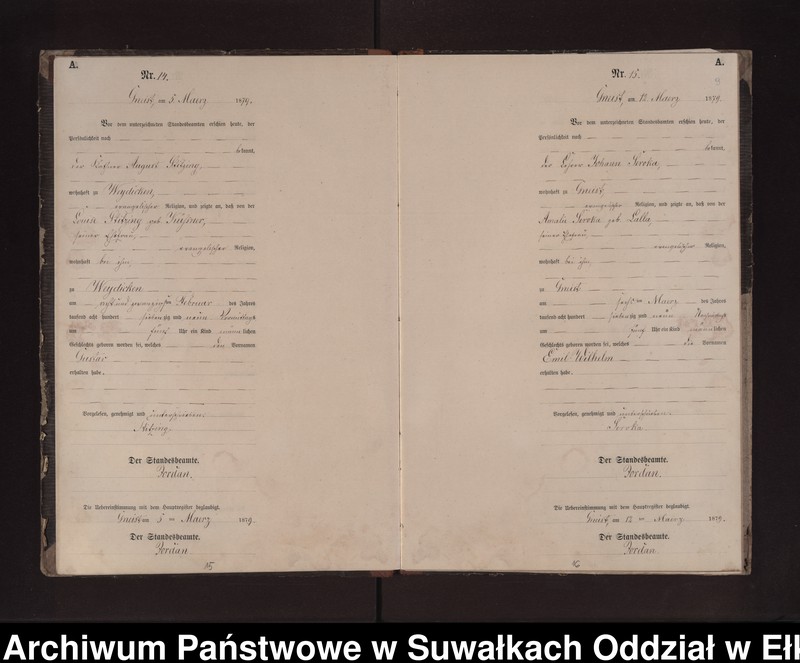 A.
Nr. 14.
Gneist, am 5 Maerz 1879.
Vor dem unterzeichneten Standesbeamten erschien heute, der
Persönlichkeit nach
bekannt,
der August
wohnhaft zu Weydicken,
evangelischer Religion, und zeigte an, daß von der
Louise geb.
seiner Ehefrau,
evangelischer Religion,
wohnhaft bei ihm,
zu Weydicken
am acht und zwanzigsten Februar des Jahres
tausend acht hundert siebenzig und neun Vormittags
um fünf Uhr ein Kind männlichen
Geschlechts geboren worden sei, welches den Vornamen
Gustav
erhalten habe.
Vorgelesen, genehmigt und unterschrieben.
Der Standesbeamte.
Jordan.
Die Uebereinstimmung mit dem Hauptregister beglaubigt.
Gneist am 5 ten Maerz 1879.
Der Standesbeamte.
Jordan
A.
Nr. 15.
Gneist, am 12 Maerz 1879.
Vor dem unterzeichneten Standesbeamten erschien heute, der
Persönlichkeit nach
bekannt,
der Johann Sivoka,
wohnhaft zu Gneist
evangelischer Religion, und zeigte an, daß von der
Amalie Sivoka geb. Lalla,
seiner Ehefrau,
evangelischer Religion,
wohnhaft bei ihm,
zu Gneist
am sechsten Maerz des Jahres
tausend acht hundert siebenzig und neun
um fünf Uhr ein Kind männlichen
Geschlechts geboren worden sei, welches die Vornamen
Emil Wilhelm
erhalten habe.
Vorgelesen, genehmigt und unterschrieben.
Sivoka
Der Standesbeamte.
Jordan.
Die Uebereinstimmung mit dem Hauptregister beglaubigt.
Gneist, am 12 ten Maerz 1879.
Der Standesbeamte.
Jordan
Archiwum Państwowe w Suwałkach Oddział w Ełk